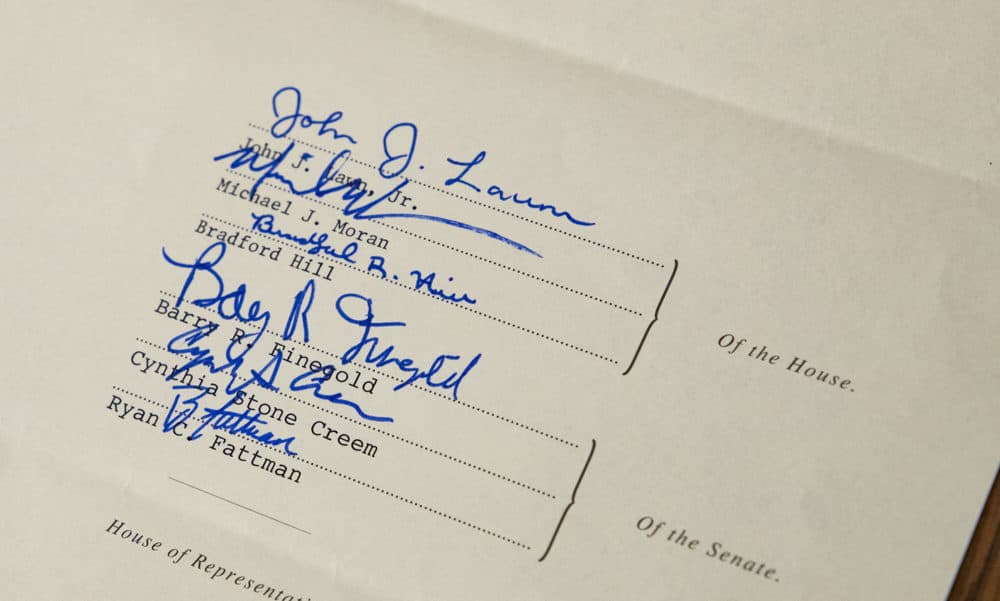 John J. Lawn
John J. Lawn, Jr.
Michael J. Moran
Bradford R. Hill
Bradford Hill
Of the House.
Barry R Finegold
Barry R. Finegold
Cynthia Stone Creem
Fattman
Ryan C. Fattman
Of the Senate.
House of Representat